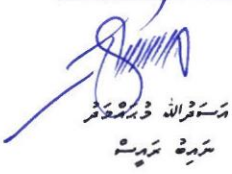 އަސަދުﷲ މުޙައްމަދު
ނައިބު ރައީސް